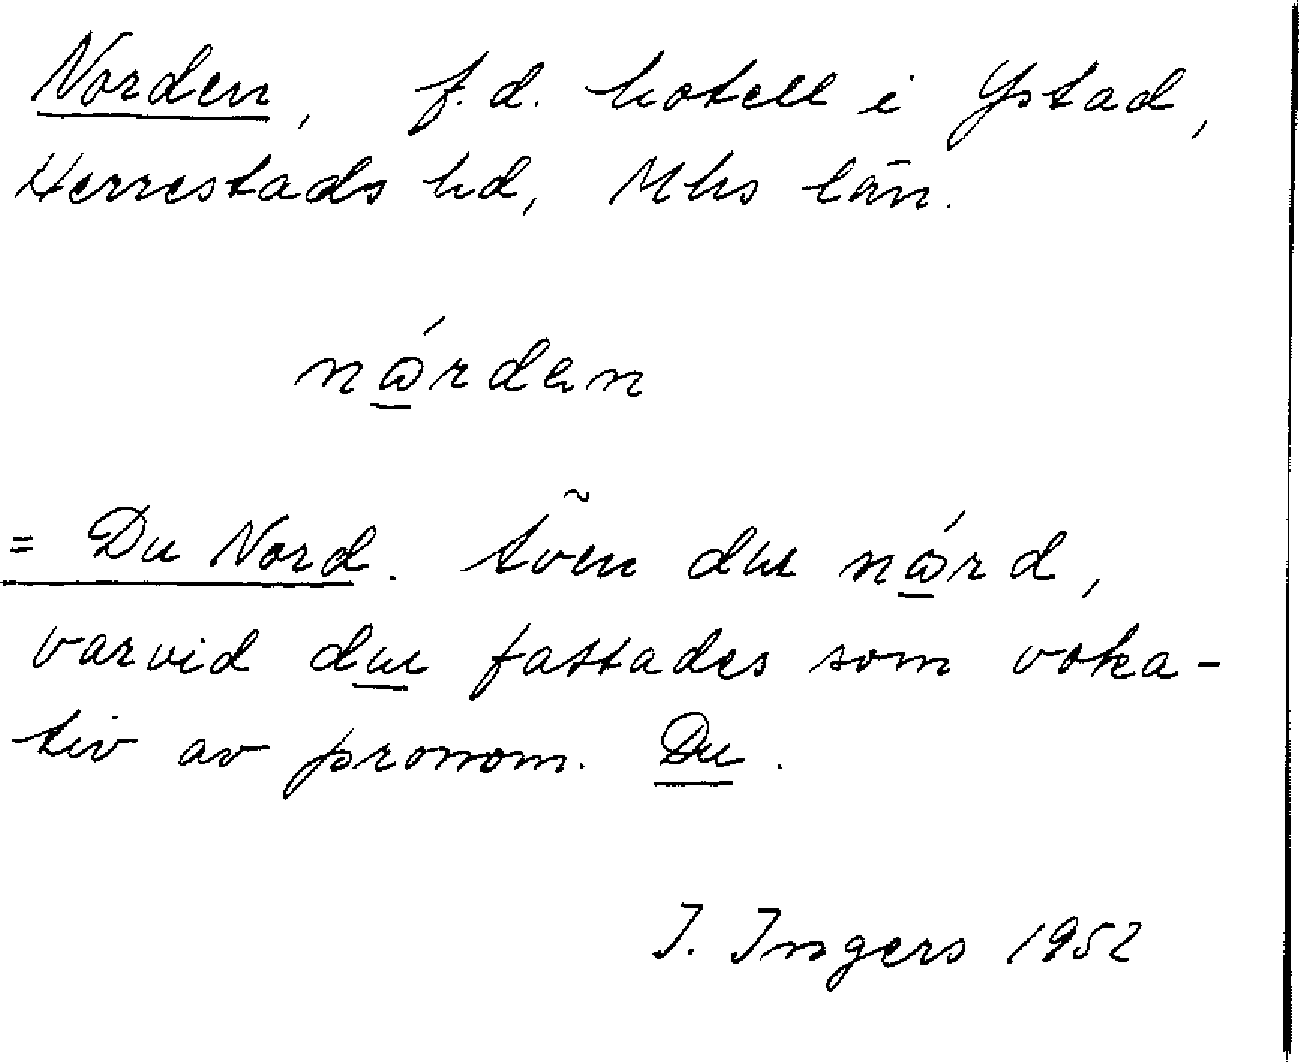 Norden, f.d. hotell i Ystad,
Herrestads hd, Mhs län.
nώrdən
= Du Nord. Även dɯ nώrd,
varvid dɯ fattades som voka-
tiv av pronom. Du.
I. Ingers 1952